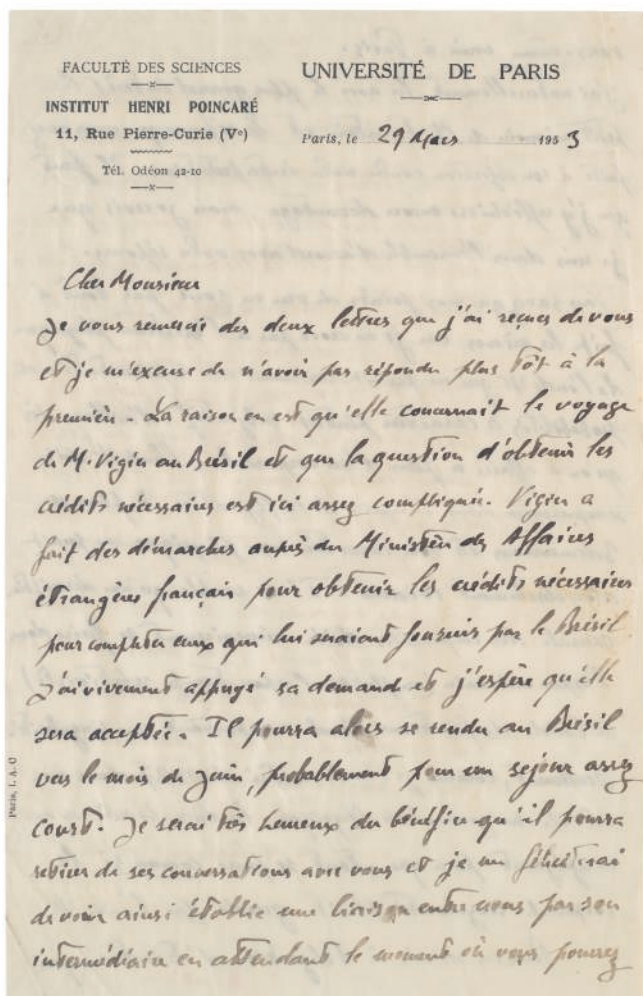 FACULTÉ DES SCIENCES
INSTITUT HENRI POINCARÉ
11, Rue Pierre-Curie (Ve)
Tél. Odéon 42-10
UNIVERSITÉ DE PARIS
Paris, le 29 Mars 1953
Cher Monsieur
Je vous remercie des deux lettres que j'ai reçues de vous
et je m'excuse de n'avoir pas répondu plus tôt à la
première. La raison en est qu'elle concernait le voyage
de M. Vigier au Brésil et que la question d'obtenir les
crédits nécessaires est ici assez compliquée. Vigier a
fait des démarches auprès du Ministère des Affaires
étrangères français pour obtenir les crédits nécessaires
pour compléter ceux qui lui seraient fournis par le Brésil.
J'ai vivement appuyé sa demande et j'espère qu'elle
sera acceptée. Il pourra alors se rendre au Brésil
vers le mois de Juin, probablement pour un séjour assez
court. Je serai très heureux du bénéfice qu'il pourra
retirer de ses conversations avec vous et je me féliciterai
de voir ainsi établie une liaison entre nous par son
intermédiaire en attendant le moment où vous pourrez
Paris, I. A. C